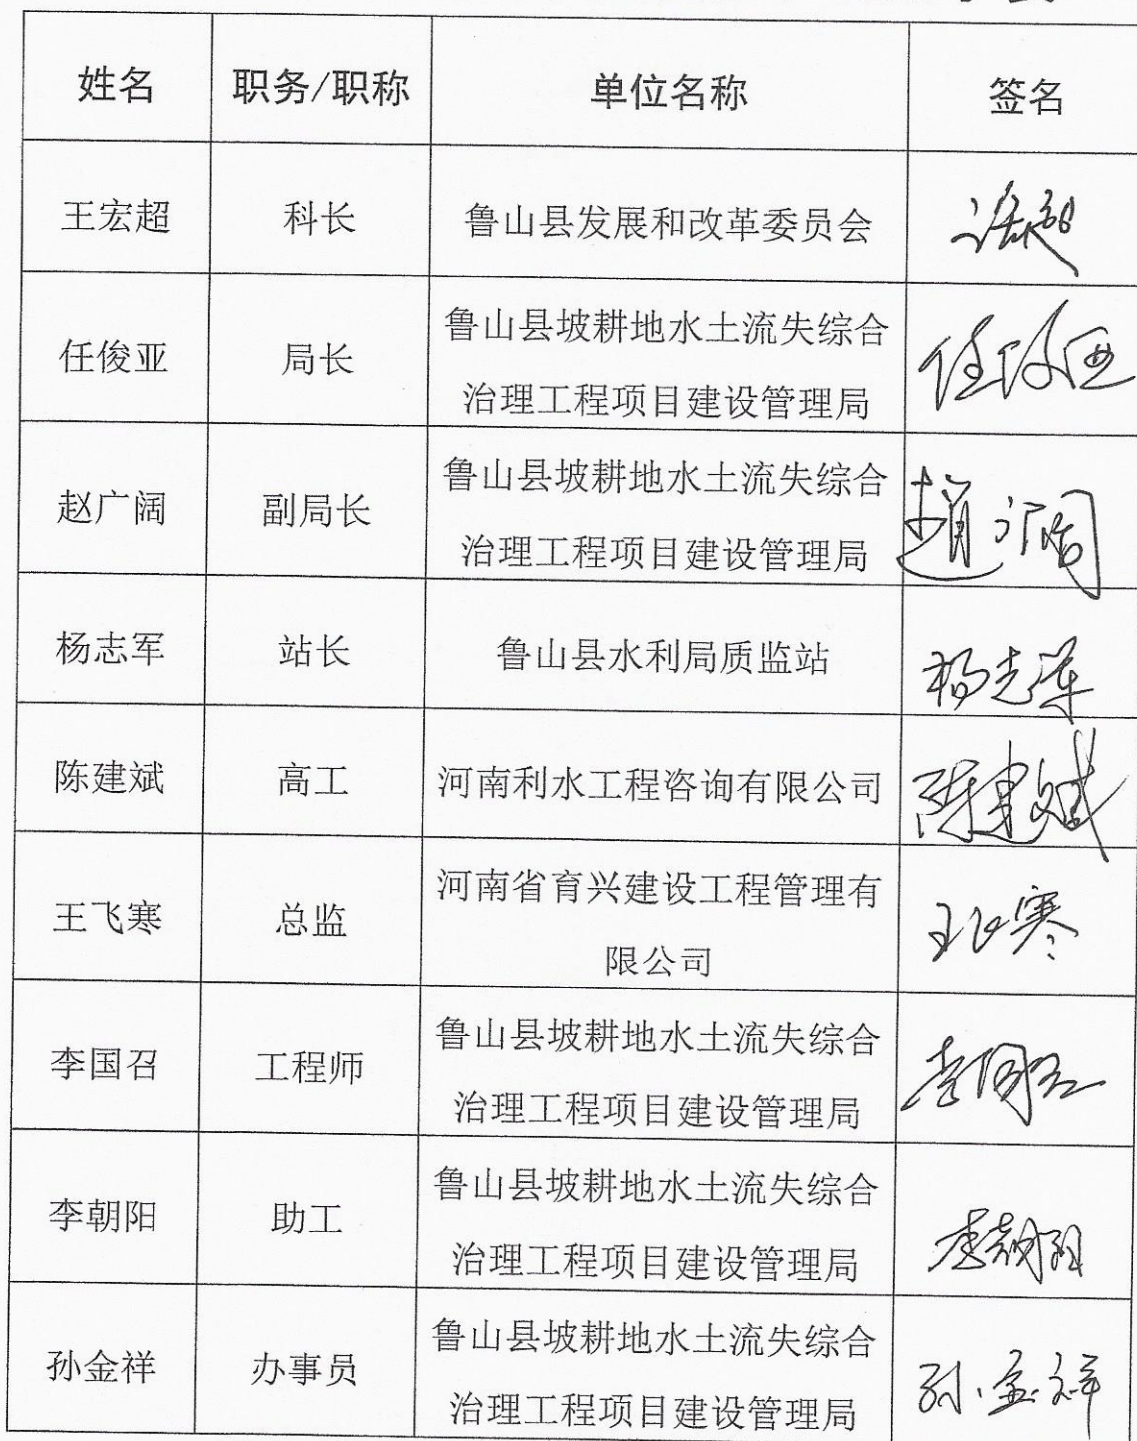 姓名 职务/职称 单位名称 签名
王宏超 科长 鲁山县发展和改革委员会
任俊亚 局长 鲁山县坡耕地水土流失综合
治理工程项目建设管理局 任俊亚
赵广阔 副局长 鲁山县坡耕地水土流失综合
治理工程项目建设管理局 趙广阔
杨志军 站长 鲁山县水利局质监站 杨志军
陈建斌 高工 河南利水工程咨询有限公司 陈建斌
王飞寒 总监 河南省育兴建设工程管理有
限公司 王飞寒
李国召 工程师 鲁山县坡耕地水土流失综合
治理工程项目建设管理局 李国召
李朝阳 助工 鲁山县坡耕地水土流失综合
治理工程项目建设管理局 李朝阳
孙金祥 办事员 鲁山县坡耕地水土流失综合
治理工程项目建设管理局 孙金祥